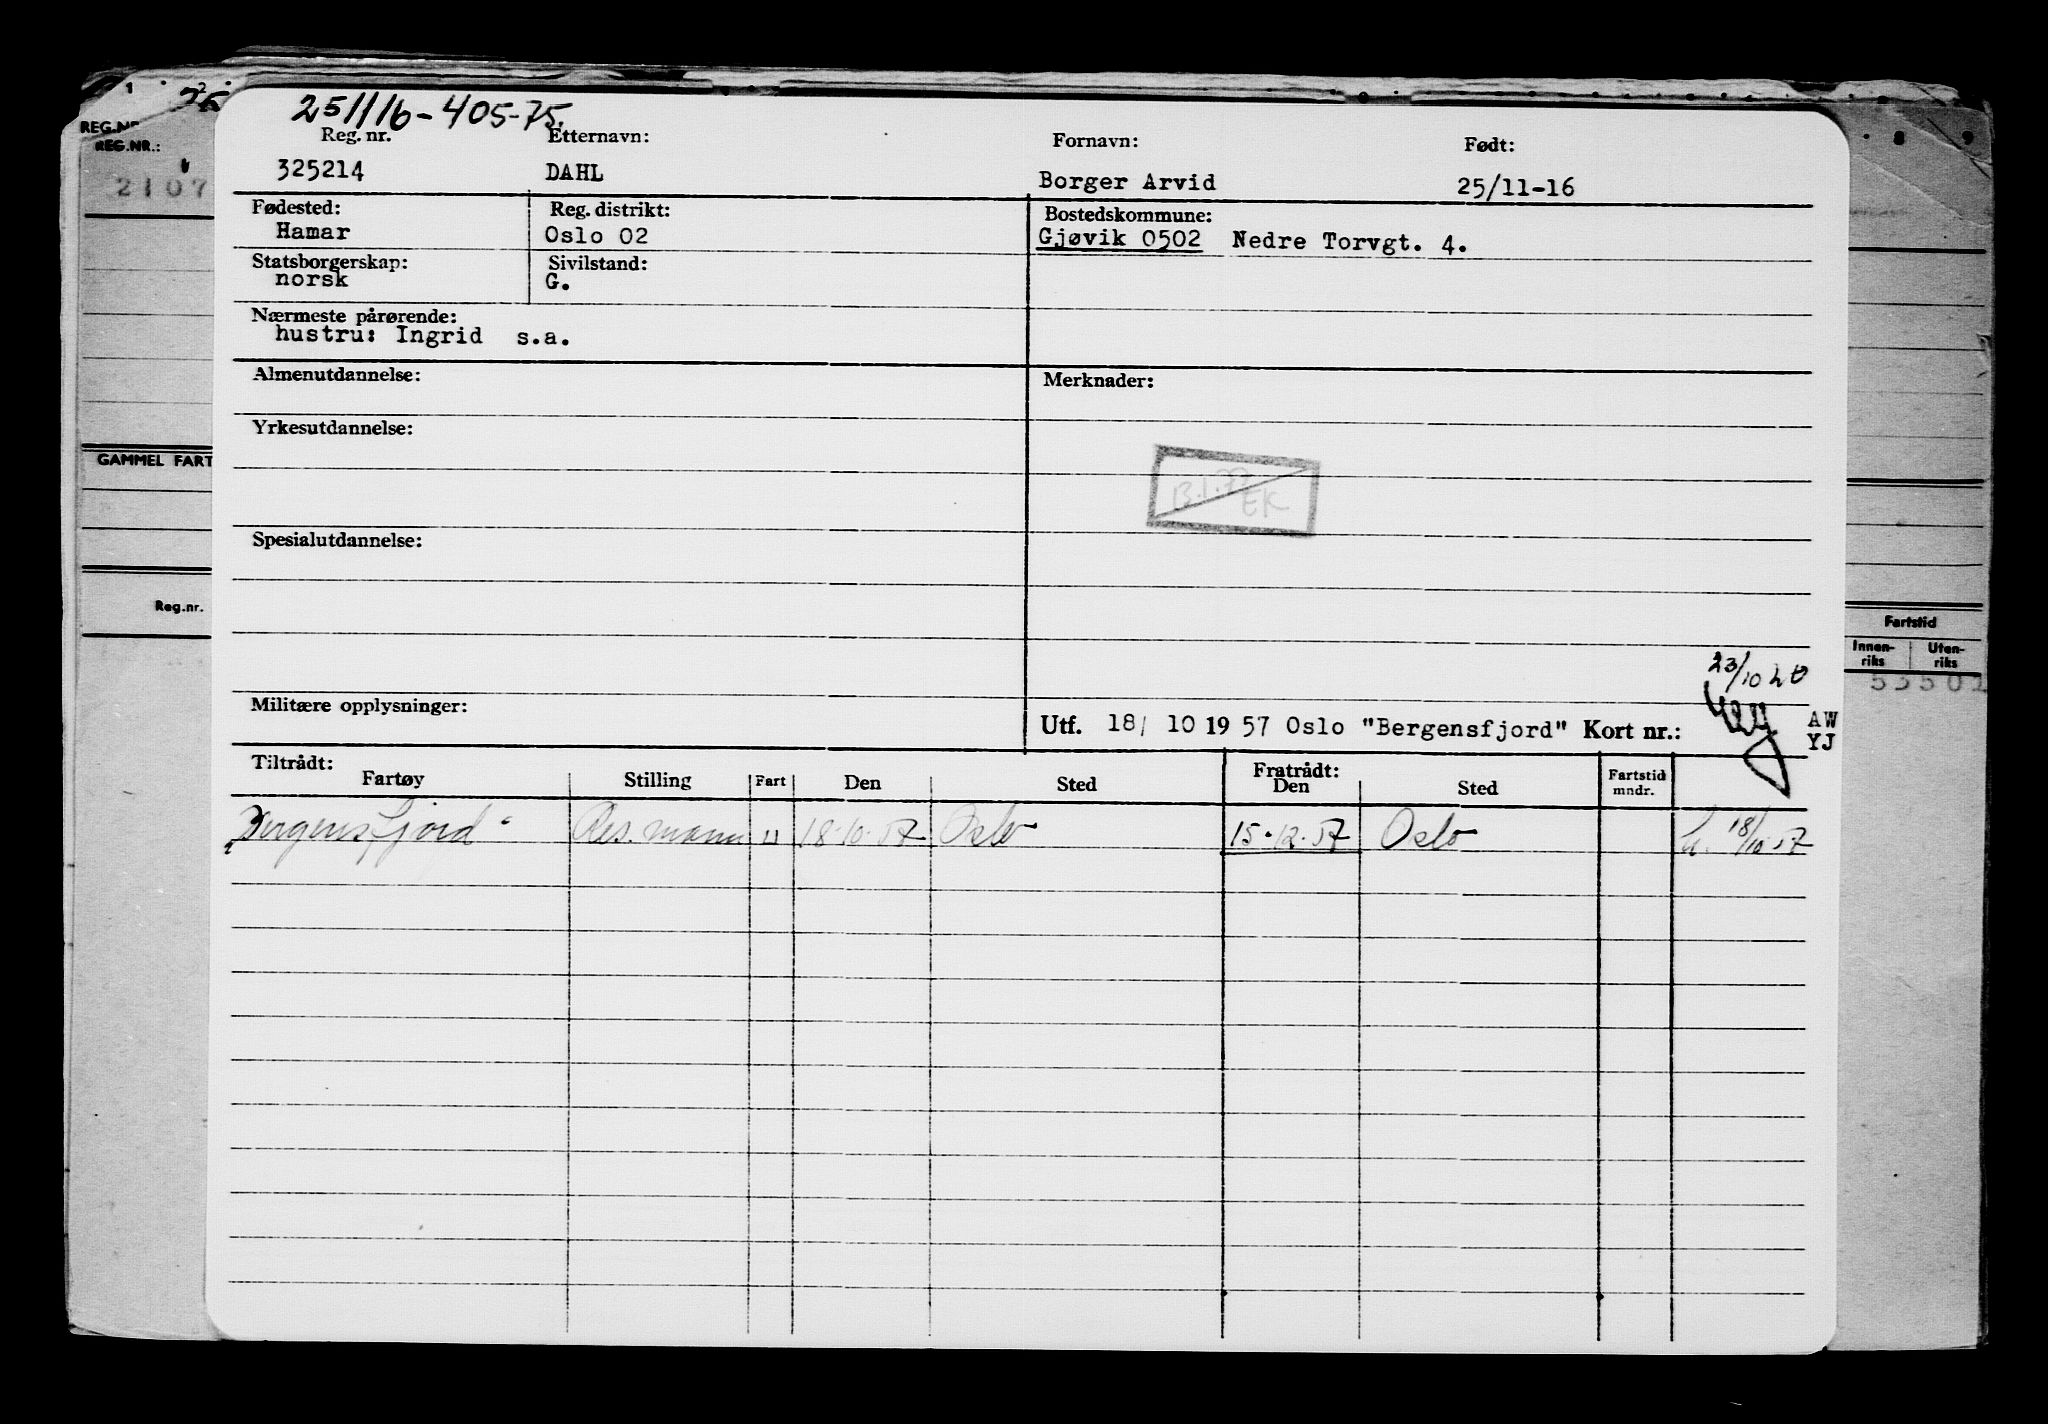 1 2
REG.NR
REG.NR.:
2107
GAMMEL FART
Reg.nr.
251116-405-75.
Reg. nr. Etternavn: Fornavn: Født:
325214 DAHL Borger Arvid 25/11-16
Fødested: Reg. distrikt: Bostedskommune:
Hamar Oslo 02 Gjøvik 0502 Nedre Torvgt. 4.
Statsborgerskap: Sivilstand:
norsk G.
Nærmeste pårørende:
hustru: Ingrid s.a.
Almenutdannelse: Merknader:
Yrkesutdannelse:
EK
Spesialutdannelse:
23/10
Militære opplysninger:
Utf. 18/ 10 19 57 Oslo "Bergensfjord" Kort nr.: AW
YJ
Tiltrådt: Fratrådt:
Fartøy Stilling Fart Den Sted Den Sted Fartstid mndr.
"Bergensfjord" Res. mann U 18-10-57 Oslo 15-12-57 Oslo 18/10-57
8 9
Fartstid
Innen-riks Uten-riks
53501